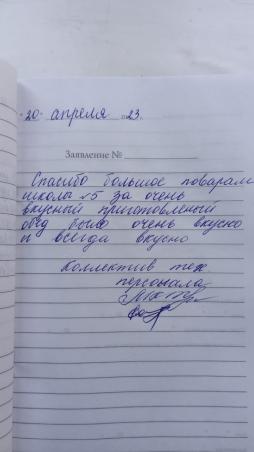 "20" апреля 2023.
Заявление №
Спасибо большое поварам
школы №5 за очень
вкусный приготовленый
обед было очень вкусно
и всегда вкусно
Коллектив тех
персонала